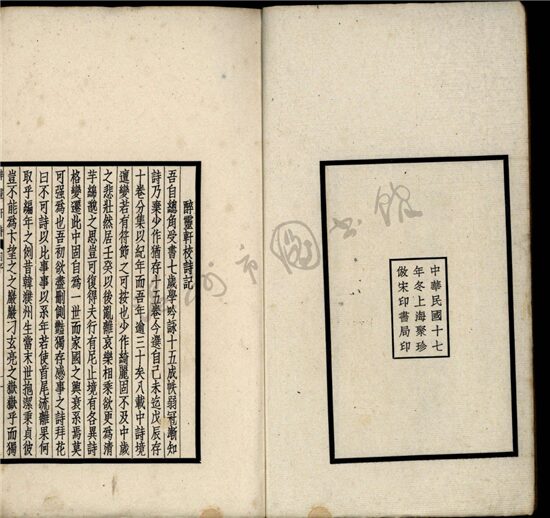 中華民國十七
年冬上海聚珍
倣宋印書局印
醉靈軒校詩記
吾自總角受書七歲學吟詠十五成帙弱冠漸知
詩乃棄少作猶存十五卷今選自己未迄戊辰存
十卷分集以紀年而吾年逾三十矣八載中詩境
遭變若有符節之可按也少作綺麗固不及中歲
之悲壯然居壬癸以後亂離哀樂相乘欲更為清
芋綿邈之思豈可復得夫行有足止境有各異詩
格變遷此中固自為一世而家國之興衰系焉莫
可強為也吾初欲盡刪側豔獨存感事之詩拜花
曰不可詩以比事事以系年若使首尾流離果何
取乎編年之例昔韓濮州生當末世抱潔秉貞彼
豈不能為卞望之之巖巖刁玄亮之嶽嶽乎而獨